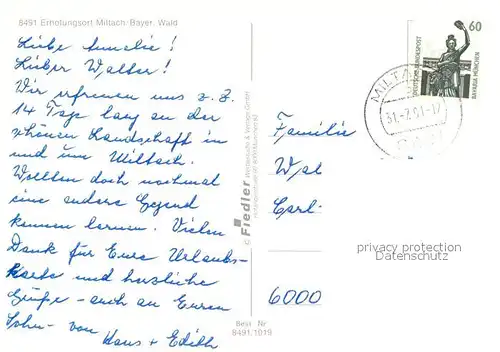 8491 Erholungsort Miltach/Bayer. Wald
Liebe Amalie!
Lieber Walter!
Wir erfreuen uns z. Z.
14 Tage lang an der
schönen Landschaft in
und um Miltach.
Wollten doch nochmal
eine andere Gegend
kennen lernen. Vielen
Dank für Eure Urlaubs-
karte und herzliche
Grüße - auch an Euren
Sohn - von
Hans + Edith
© Fiedler
Best Nr
8491.1019
60
DEUTSCHE BUNDESPOST
BAVARIA MÜNCHEN
MILTA
31.-7.91-17
Familie
Wal
Carl-
6000
privacy protection
Datenschutz